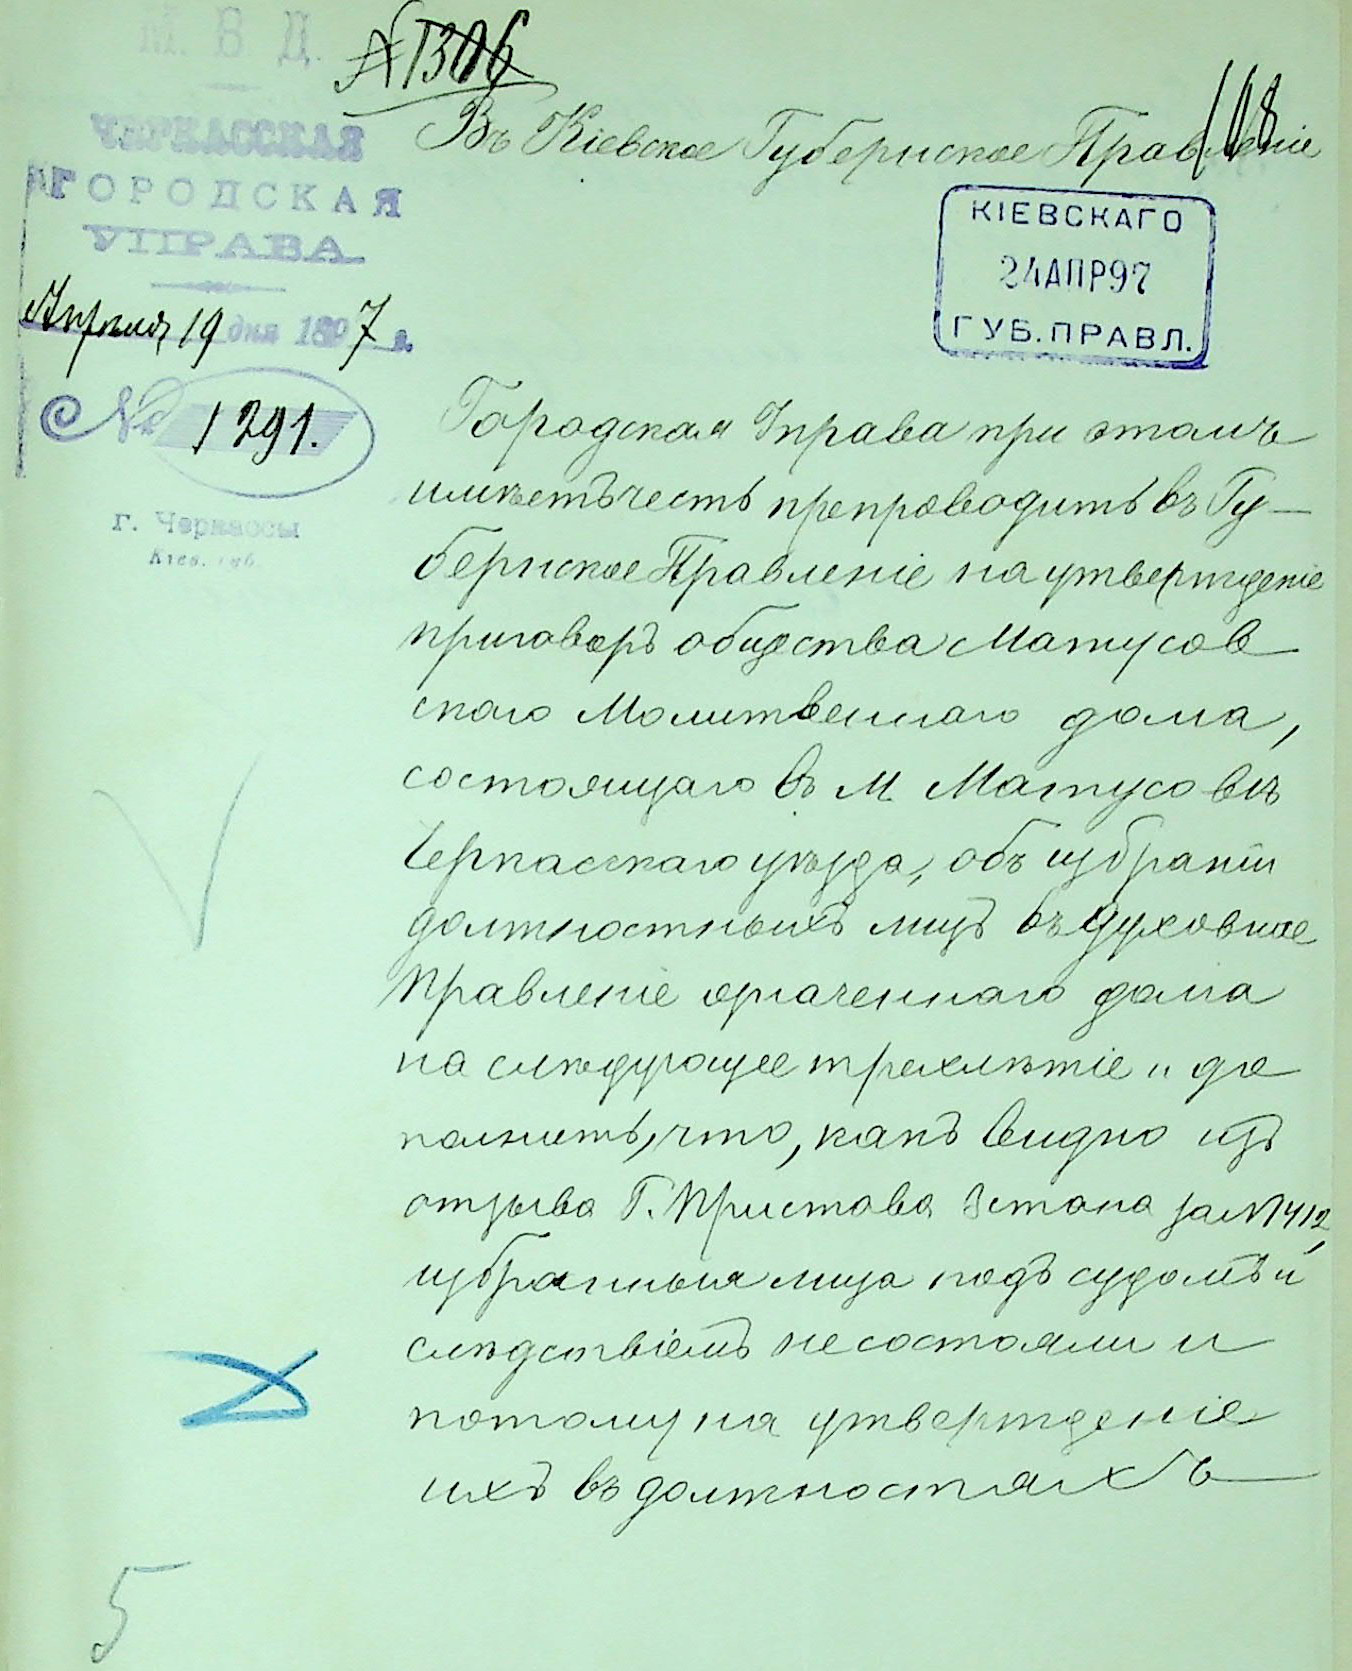 М. В. Д.
№ 1306
108
Въ Кіевское Губернское Правленіе
ЧЕРКАССКАЯ
ГОРОДСКАЯ
УПРАВА
Апрѣля 19 дня 1897 г.
№ 1291.
г. Черкассы
Кіев. губ.
КІЕВСКАГО
24 АПР 97
ГУБ. ПРАВЛ.
Городская Управа при этомъ
имѣетъ честь препроводить въ Гу-
бернское Правленіе на утвержденіе
приговоръ общества Матусов
скаго Молитвеннаго дома,
состоящаго въ м. Матусовѣ
Черкасскаго уѣзда, объ избраніи
должностныхъ лицъ въ духовное
Правленіе означеннаго дома
на слѣдующее трехлѣтіе и до
полнить, что, какъ видно изъ
отзыва Г. Пристава 3 стана за № 1412,
избранныя лица подъ судомъ и
слѣдствіемъ не состояли и
потому на утвержденіе
ихъ въ должностяхъ
5